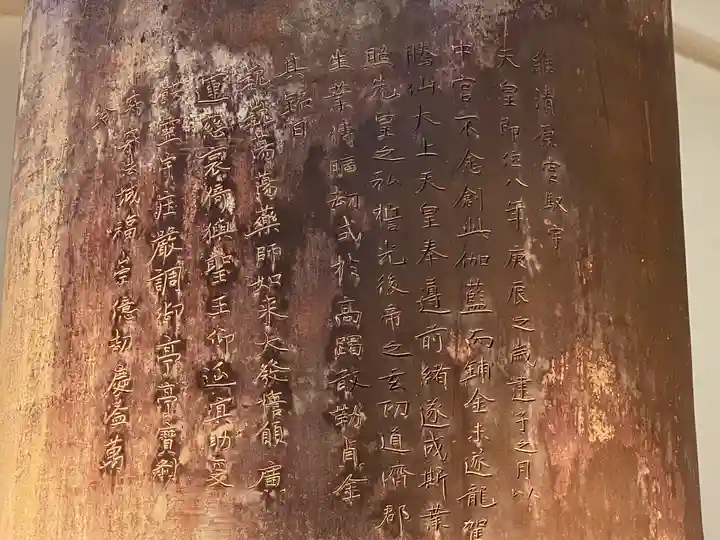 維清原宮馭宇
天皇即位八年庚辰之歳建子之月以
中宮不悆創此伽藍而鋪金未遂龍駕
騰仙大上天皇奉遵前緒遂成斯業
照先皇之弘誓光後帝之玄功道済郡
生業傳曠劫式於高躅敢勒貞金
其銘曰
巍巍蕩蕩薬師如来大發誓願廣
運慈哀猗𤟱聖王仰延冥助爰
餝靈宇荘嚴調御亭亭寶刹
寂寂法城福崇億劫慶溢萬
齢